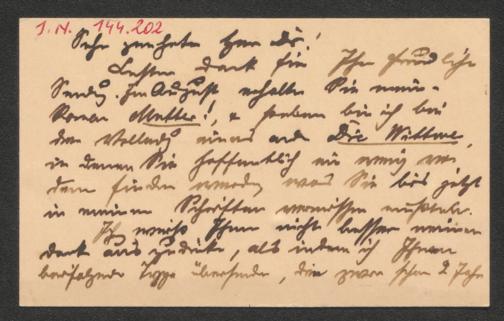 J. N. 144.202
Sehr geehrter Herr Dr.!
Besten Dank für Ihre freundliche
Sendung. Im August erhalten Sie meine
Roman Mutter!, & soeben bin ich bei
der Vollendung eines and Die Witwe,
in denen Sie hoffentlich ein wenig von
dem finden werden was Sie bis jetzt
in meinen Schriften vermissen mußten.
Ich weiß Ihnen nicht besser meinen
Dank auszudrücken, als indem ich Ihnen
beifolgende übersende, die zwar schon 2 Jahre